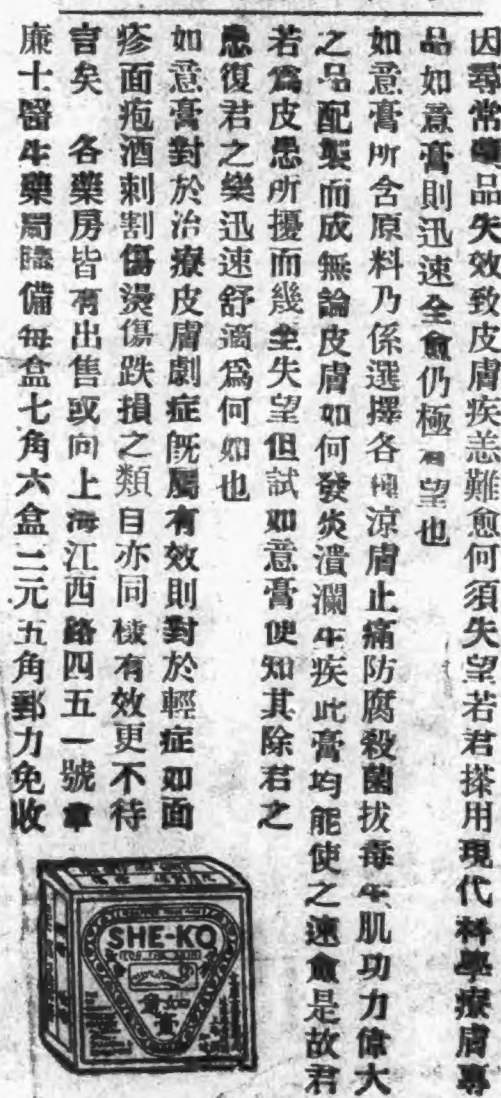 因尋常藥品失效致皮膚疾恙難愈何須失望若君採用現代科學療膚專
品如意膏則迅速全愈仍極有望也
如意膏所含原料乃係選擇各種涼膚止痛防腐殺菌拔毒生肌功力偉大
之品配製而成無論皮膚如何發炎潰瀾生疾此膏均能使之速愈是故君
若為皮患所擾而幾至失望但試如意膏便知其除君之
患復君之樂迅速舒適為何如也
如意膏對於治療皮膚劇症既屬有效則對於輕症如面
疹面疱酒刺割傷燙傷跌損之類自亦同樣有效更不待
言矣 各藥房皆有出售或向上海江西路四五一號韋
廉士醫生藥局購備每盒七角六盒二元五角郵力免收
SHE-KO
FOR THE SKIN
如意膏